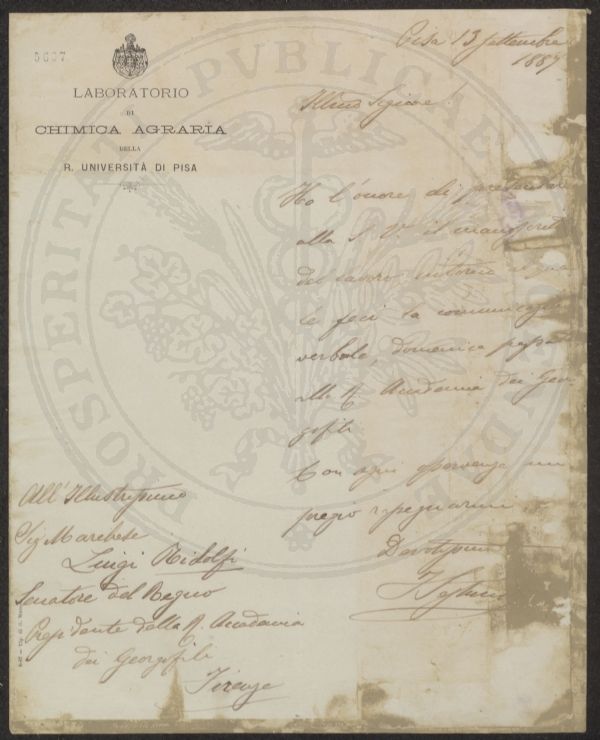 5697
LABORATORIO
DI
CHIMICA AGRARIA
DELLA
R. UNIVERSITÀ DI PISA
Pisa 13 settembre
1887
Illmo Signore
Ho l'onore di presentare
alla S. V. il manoscritto
del lavoro, intorno al qua
le feci la comunicazione
verbale, domenica passata
alla R. Accademia dei Geor
gofili
Con ogni osservanza mi
pregio rassegnarmi
Devotissimo
All'Illustrissimo
Sig Marchese
Luigi Ridolfi
Senatore del Regno
Presidente della R. Accademia
dei Georgofili
Firenze
PROSPERITATI PUBLICAE AUGENDAE